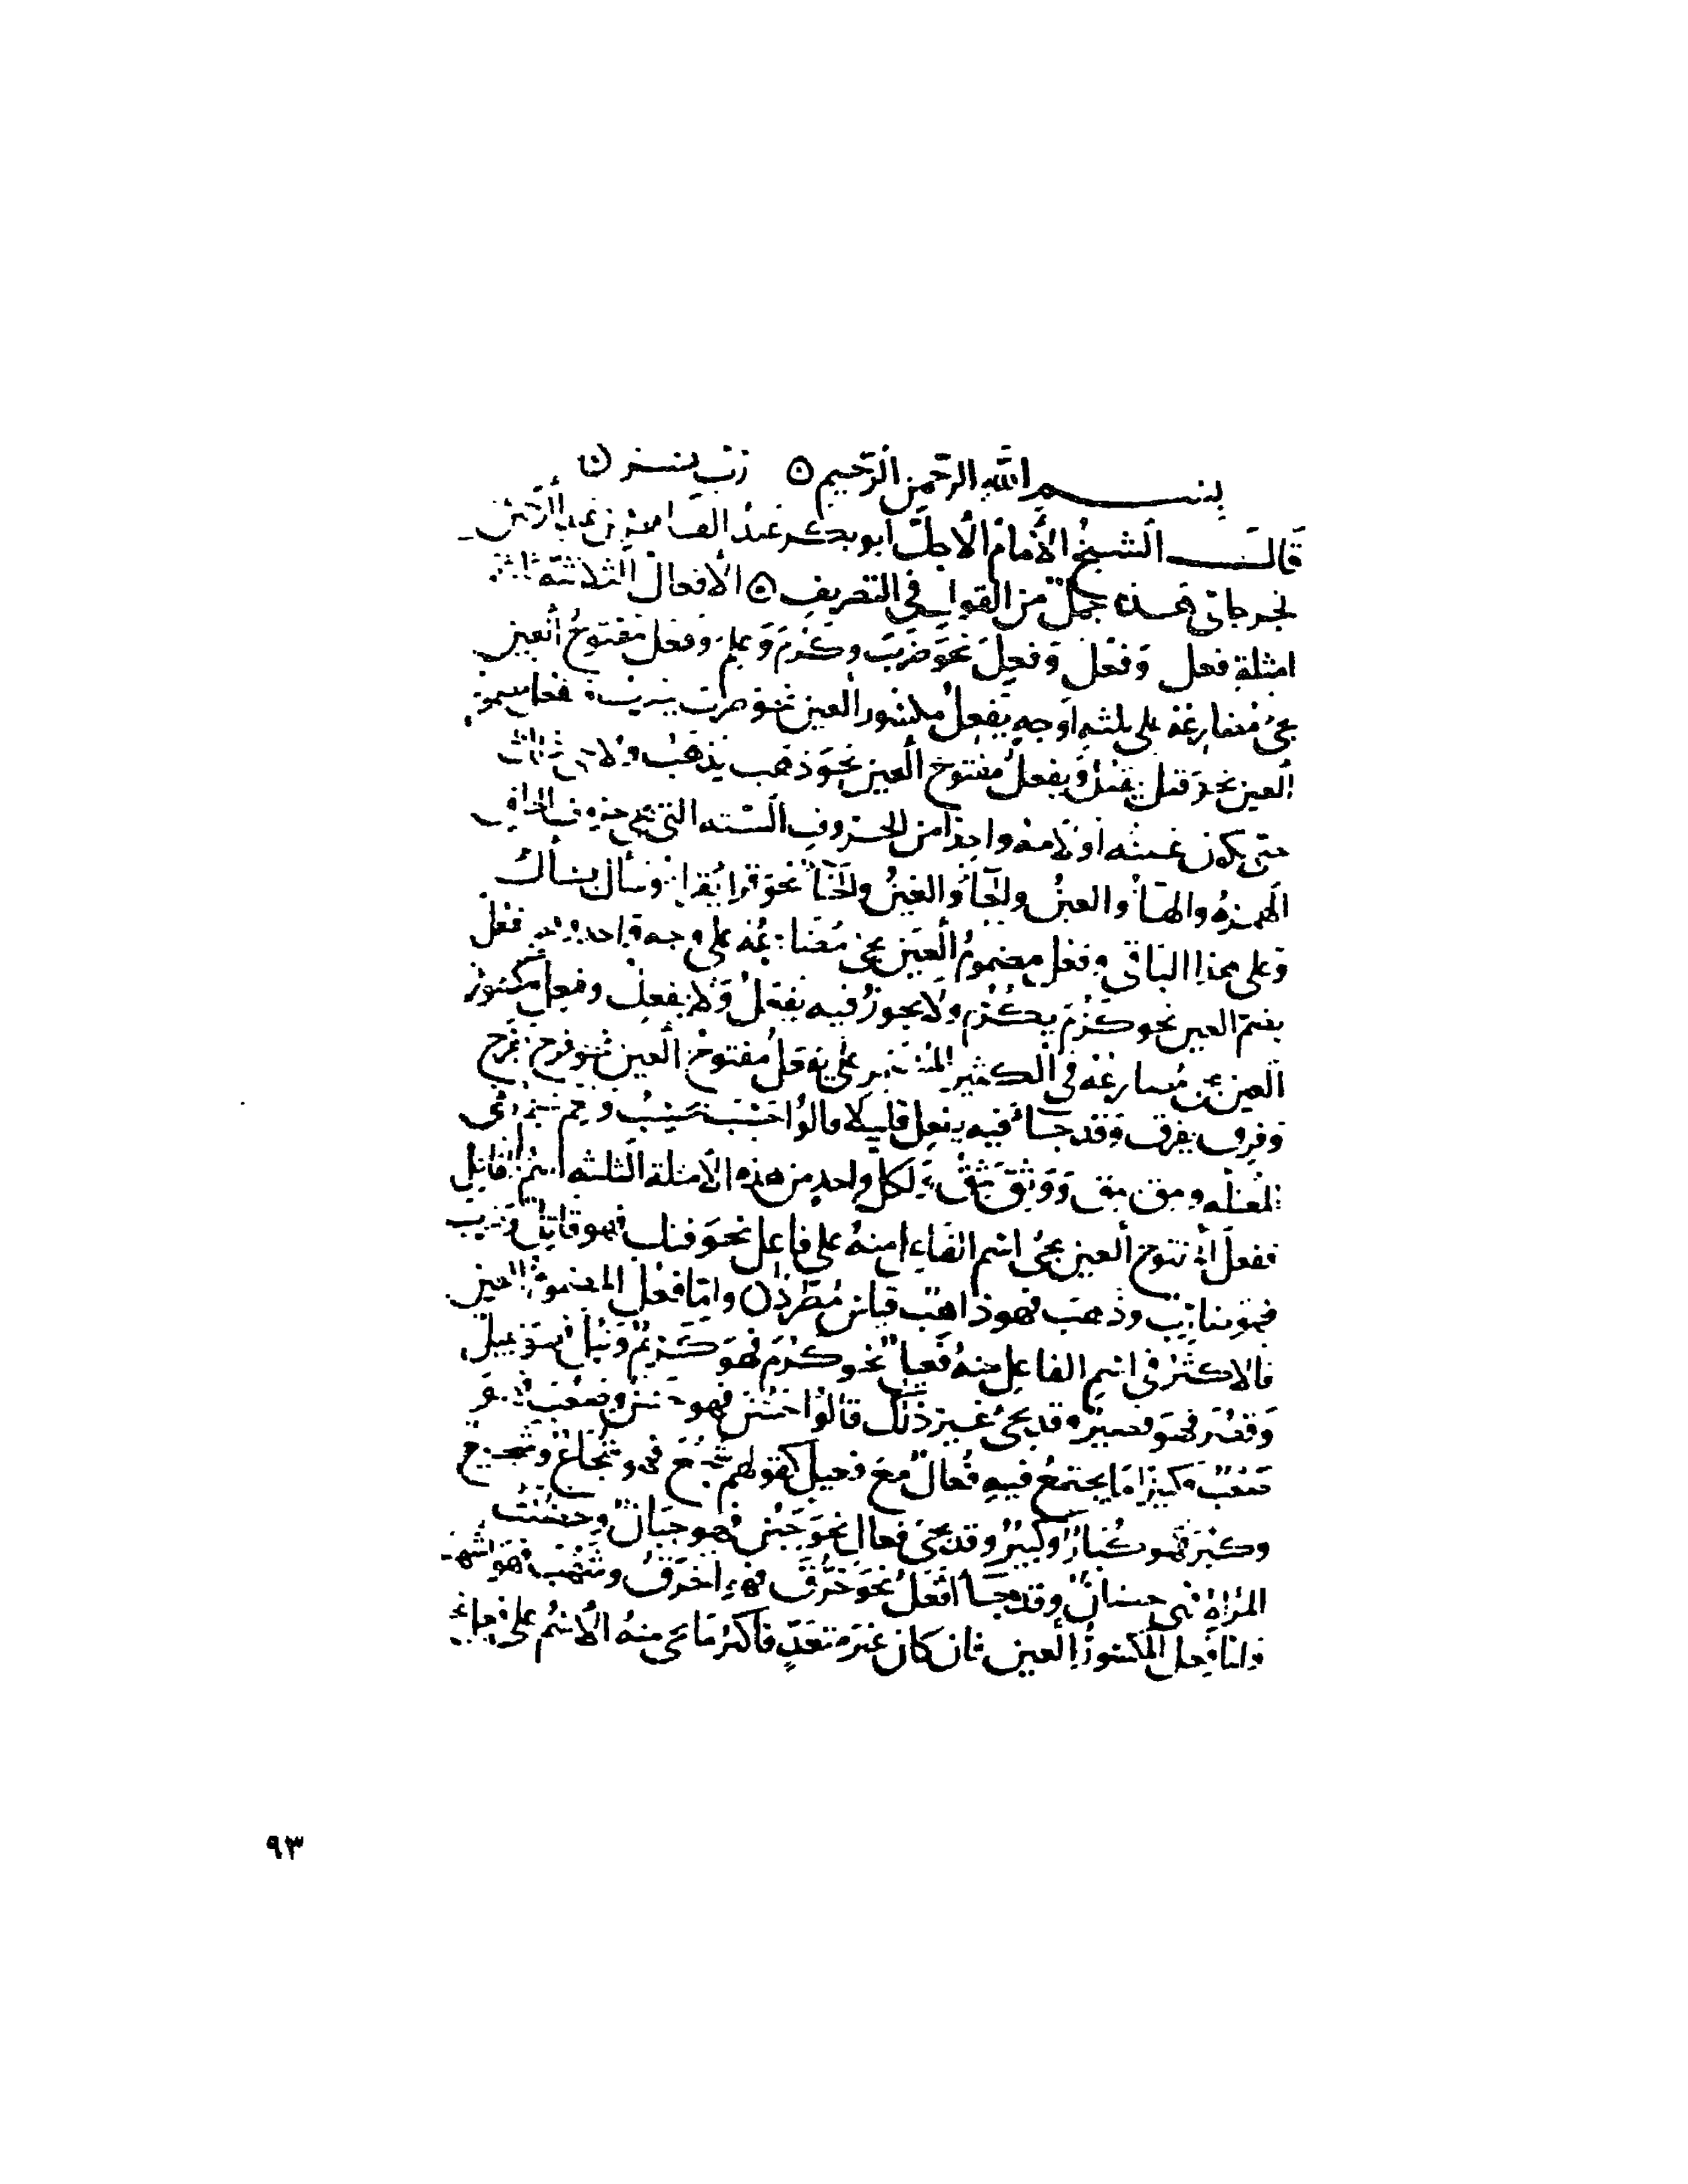 بسم الله الرحمن الرحيم ه رب يسر ن
قال الشيخ الإمام الأجل أبو بكر عبد القاهر بن عبد الرحمن
الجرجاني هذه جمل من القول في التصريف ه الأفعال الثلاثية ثلثة
امثلة فعل وفعل وفعل نحو ضرب وكرم وعلم وفعل مفتوح العين
يجئ مضارعه على ثلثه اوجه يفعل مكسور العين نحو ضرب يضرب
العين نحو قتل يقتل ويفعل مفتوح العين نحو ذهب يذهب ولا
حتى يكون عينه او لامه واحدا من الحروف الستة التي هي حروف الحلق
الهمزة والهاء والعين والحاء والغين والخاء نحو قرا يقرا وسأل يسأل
وعلى هذا الباقي وفعل مضموم العين يجئ مضارعه على وجه واحد وهو يفعل
بضم العين نحو كرم يكرم ولا يجوز فيه يفعل ولا يفعل وفعل مكسور
العين يجئ مضارعه في الكثير على يفعل مفتوح العين نحو فرح يفرح
وفرق يفرق وقد جاء فيه يفعل قليلا قالوا حسب يحسب وفي
المعتله ومق يمق ووثق يثق ولكل واحد من هذه الأمثلة الثلثه اسم الفاعل
ففعل المفتوح العين يجئ اسم الفاعل منه على فاعل نحو قتل فهو قاتل وضرب
فهو ضارب وذهب فهو ذاهب قياس مطرد ن واما فعل المضموم العين
فالاكثر في اسم الفاعل منه فعيل نحو كرم فهو كريم ونبل فهو نبيل
وقصر فهو قصير وقد يجئ غير ذلك قالوا خشن فهو خشن وصعب فهو
صعب وكثيرا ما يجتمع فيه فعال مع فعيل كقولهم شجع فهو شجاع وشجيع
وكبر فهو كبار وكبير وقد يجئ فعال نحو جبن فهو جبان وحصنت
المراة فهي حصان وقد جا أفعل نحو خرق فهو اخرق وشهب فهو اشهب
واما فعل المكسور العين فان كان غير متعد فاكثر ما يجئ منه الاسم على
٩٣